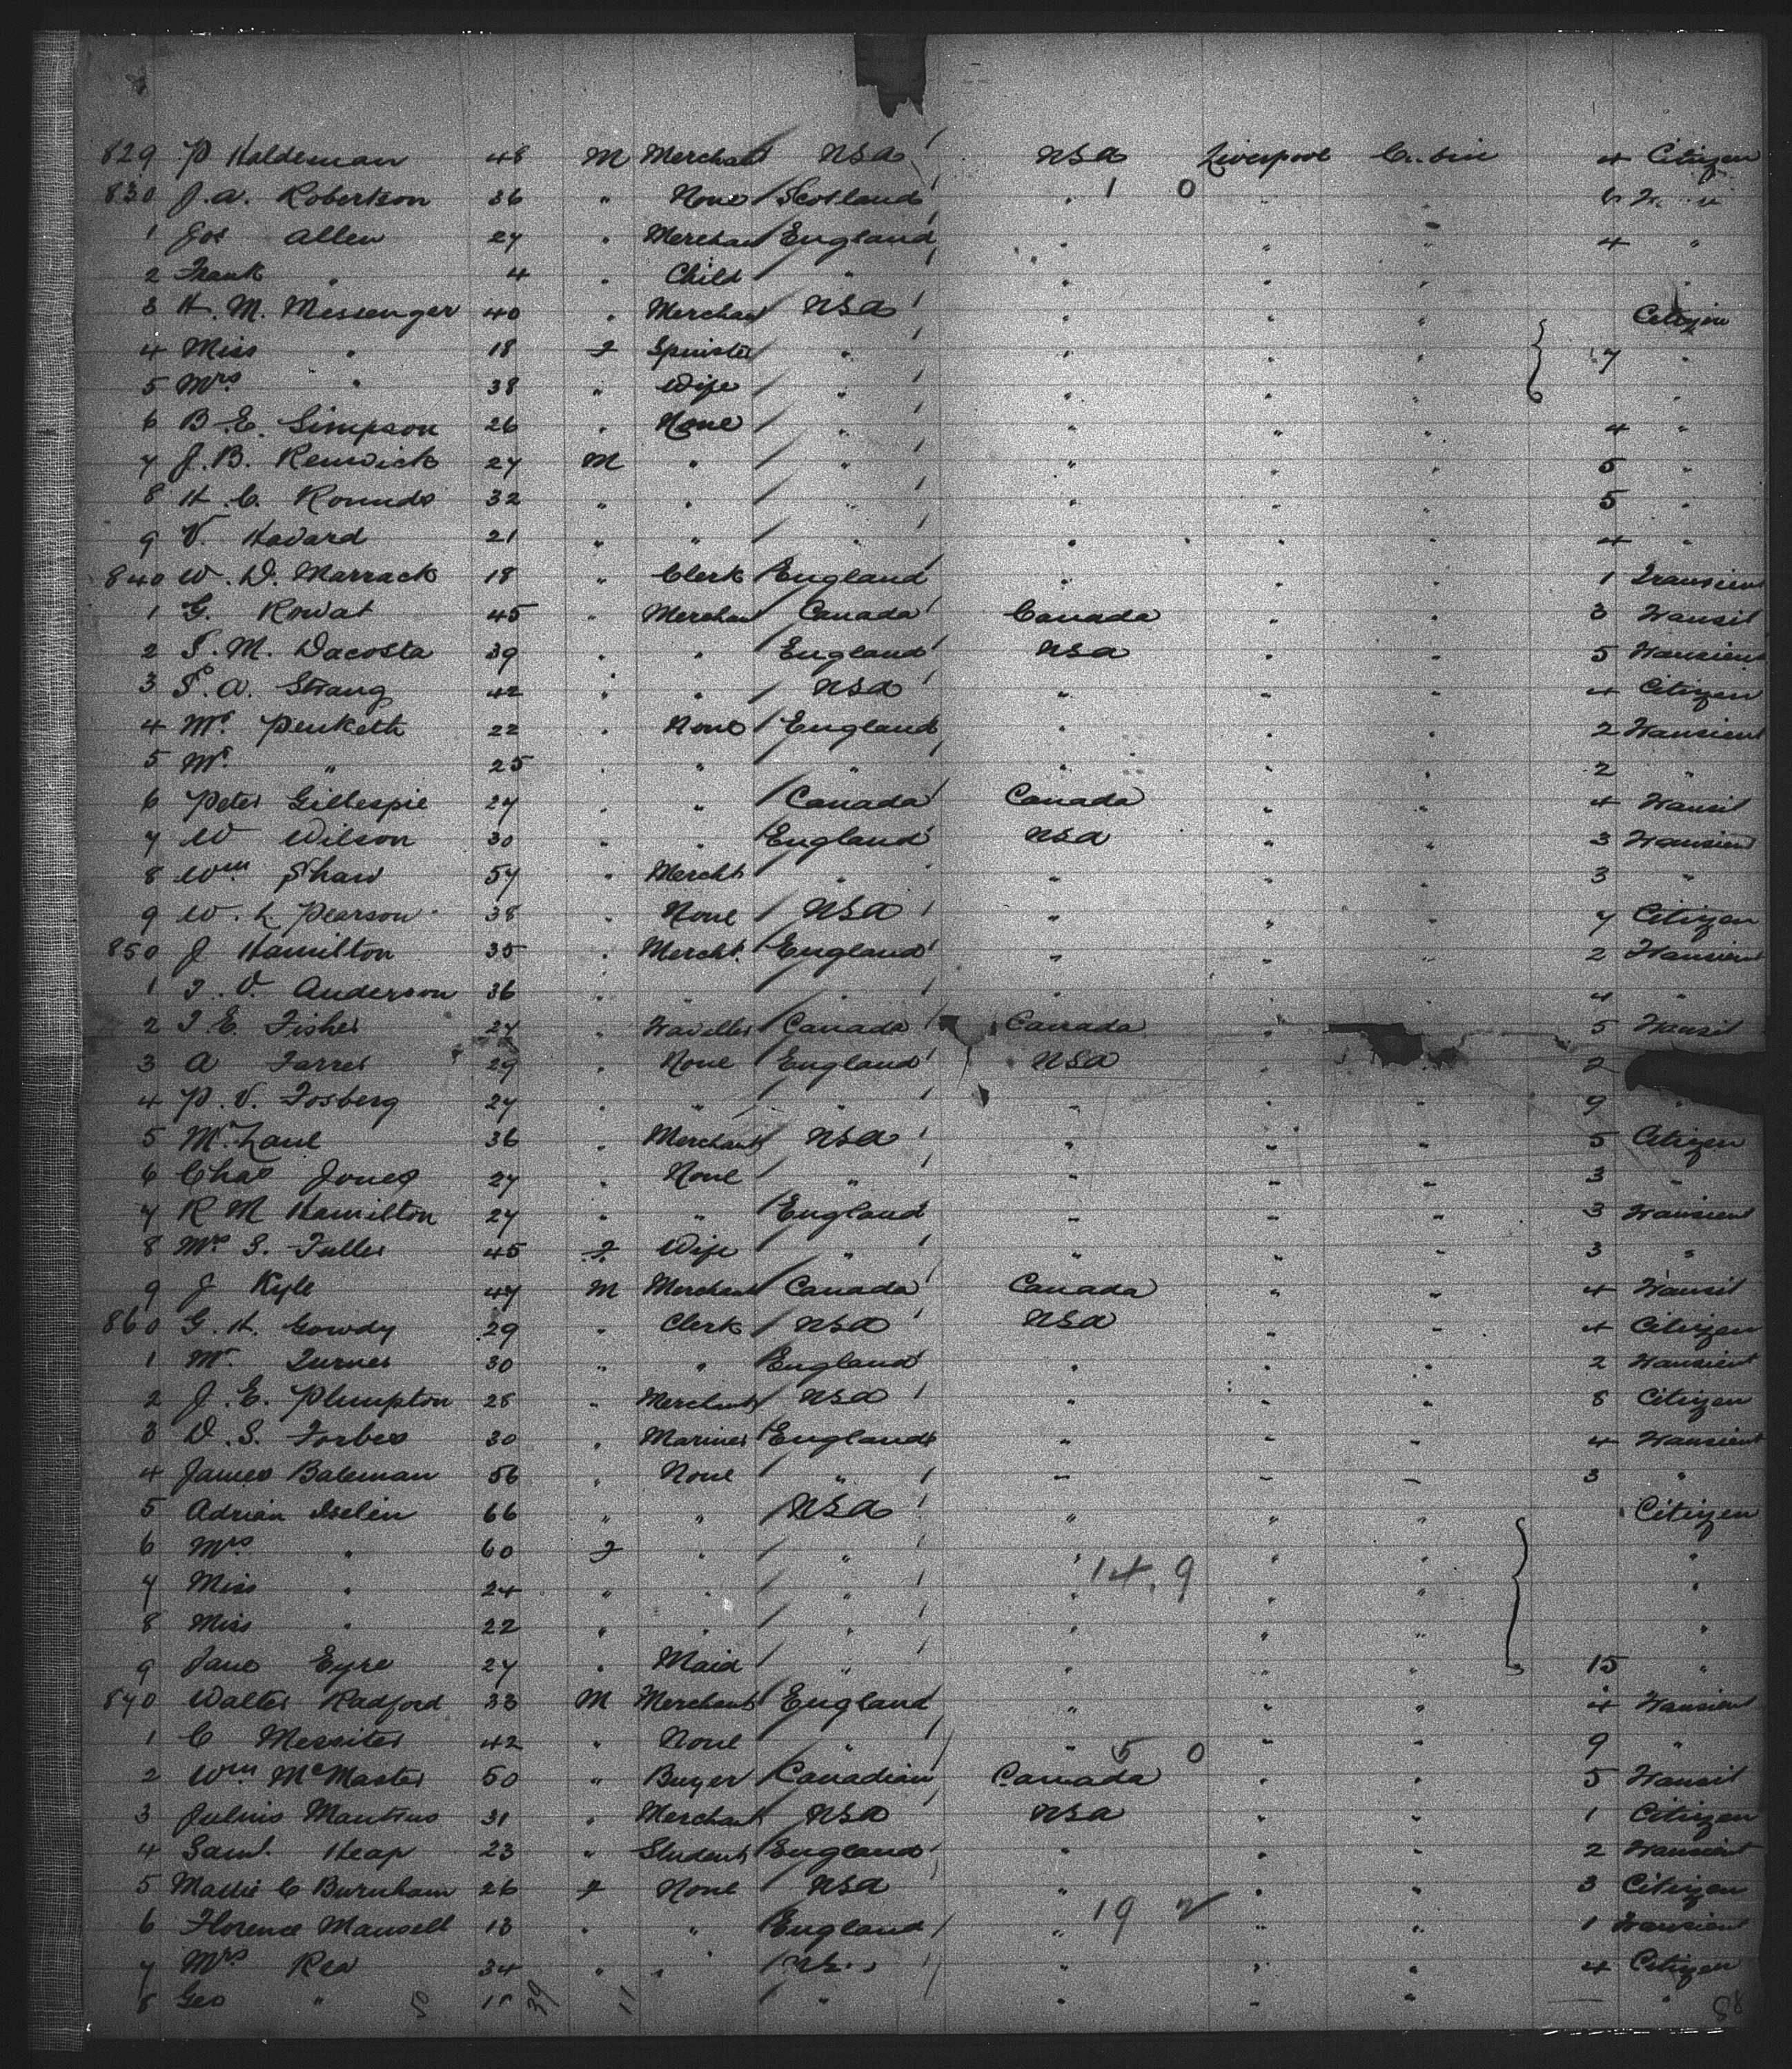 829 P Haldeman 48 M Merchant USA USA Liverpool Cabin 4 Citizen
830 J.A. Robertson 36 " None Scotland " " " 6
1 Jos Allen 27 " Merchan England " " " 4 "
2 Frank " 4 " Child " " " " "
3 H. M. Messenger 40 " Merchan USA " " " Citizen
4 Miss " 18 F Spinster " " " " 7 "
5 Mrs " 38 " Wife " " " " "
6 B. E. Simpson 26 " None " " " " 4 "
7 J. B. Renwick 27 M " " " " " 5 "
8 H. C. Rounds 32 " " " " " " 5 "
9 V. Havard 21 " " " " " " 4 "
840 W. D. Marrack 18 " Clerk England " " " 1 Transient
1 G. Rowat 45 " Merchan Canada Canada " " 3 Transit
2 S. M. Dacosta 39 " " England USA " " 5 Transient
3 S. A. Strang 42 " " USA " " " 4 Citizen
4 Mr. Penketh 22 " None England " " " 2 Transient
5 Mr. " 25 " " " " " " 2 "
6 Peter Gillespie 27 " " Canada Canada " " 4 Transit
7 W Wilson 30 " " England USA " " 3 Transient
8 Wm Shaw 57 " Mercht " " " " 3 "
9 W. L Pearson 38 " None USA " " " 7 Citizen
850 J Hamilton 35 " Mercht. England " " " 2 Transient
1 T. V. Anderson 36 " " " " " " 4 "
2 T. E. Fisher 27 " Traveller Canada Canada " " 5 Transit
3 A Farrer 29 " None England USA " " 2
4 P. V. Fosberg 27 " " " " " " 9 "
5 Mr. Lane 36 " Merchant USA " " " 5 Citizen
6 Chas Jones 27 " None " " " " 3 "
7 R M Hamilton 27 " " England " " " 3 Transient
8 Mrs S. Fuller 45 F Wife " " " " 3 "
9 J Kyle 47 M Merchant Canada Canada " " 4 Transit
860 G. H. Gowdy 29 " Clerk USA USA " " 4 Citizen
1 Mr. Turner 30 " " England " " " 2 Transient
2 J. E. Plumpton 28 " Merchant USA " " " 8 Citizen
3 D. S. Forbes 30 " Mariner England " " " 4 Transient
4 James Bateman 56 " None " " " " 3 "
5 Adrian Iselin 66 " " USA " " " Citizen
6 Mrs " 60 F " " " " " "
7 Miss " 24 " " " 14.9 " " "
8 Miss " 22 " " " " " " "
9 Jane Eyre 27 " Maid " " " " 15 "
870 Walter Radford 33 M Merchant England " " " 4 Transient
1 C Messiter 42 " None " " 5 0 " " 9 "
2 Wm McMaster 50 " Buyer Canadian Canada " " 5 Transit
3 Julius 31 " Merchant USA USA " " 1 Citizen
4 Saml. Heap 23 " Student England " " " 2 Transient
5 Mallie C Burnham 26 F None USA " " " 3 Citizen
6 Florence Mansell 18 " " England " 19 2 " " 1 Transient
7 Mrs Rea 34 " " " " " 4 Citizen
8 Geo " 39 11 " " " " "